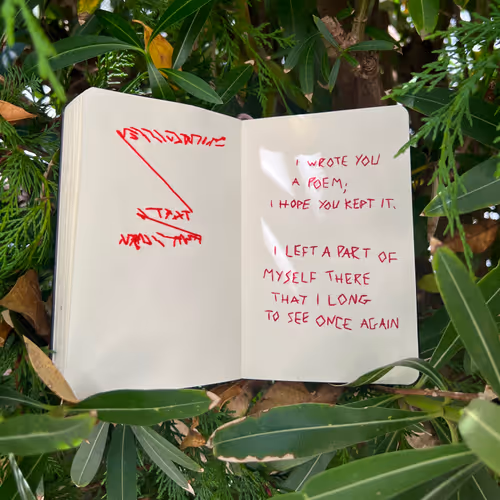 I WROTE YOU
A POEM;
I HOPE YOU KEPT IT.
I LEFT A PART OF
MYSELF THERE
THAT I LONG
TO SEE ONCE AGAIN